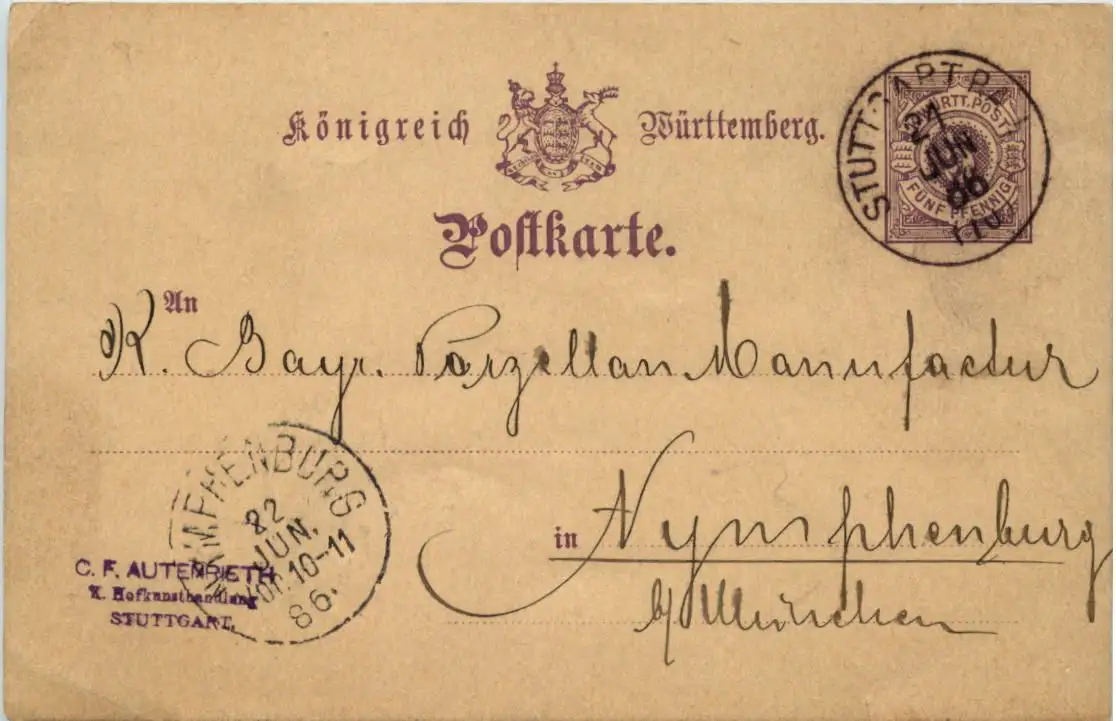 Königreich Württemberg.
WÜRTT. POST
FÜNF PFENNIG
21
JUN
86
Postkarte.
An
K. Bayr. Porzellan Manufactur
in Nymphenburg
b/ München
NYMPHENBURG
22
JUN.
10-11
86.
C. F. AUTENRIETH
K. Hofkunsthandlung
STUTTGART.